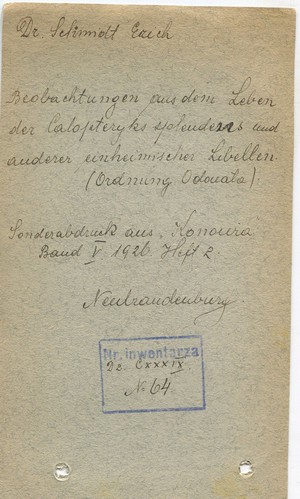 Dr. Schmidt Erich
Beobachtungen aus dem Leben
der Calopteryks splendens und
anderer einheimischer Libellen
(Ordnung Odonata).
Sonderabdruck aus "Konowia
Band V 1926. Heft 2
Neubrandenburg
Nr. inwentarza
Dz. CXXXIX
No 64